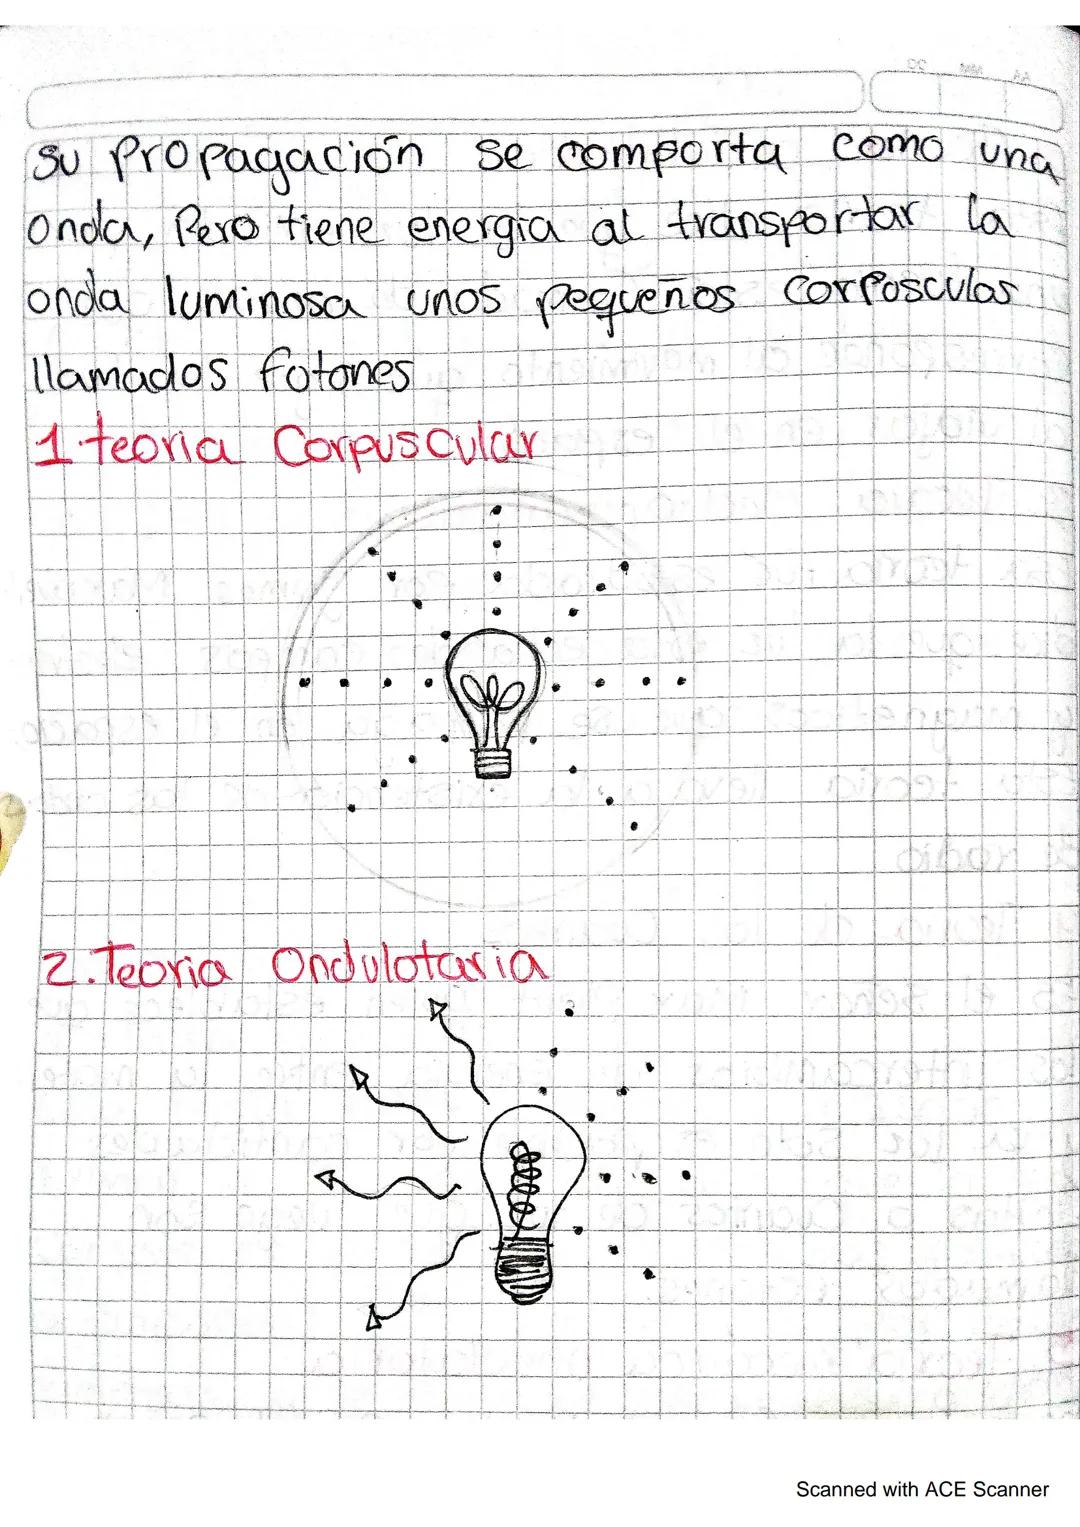 su Propagación se comporta como una
onda, Pero tiene energía al transportar la
onda luminosa unos pequeños corposculos
llamados fotones
1.teoria Corpuscular
2.Teoria Ondulotaria
Scanned with ACE Scanner